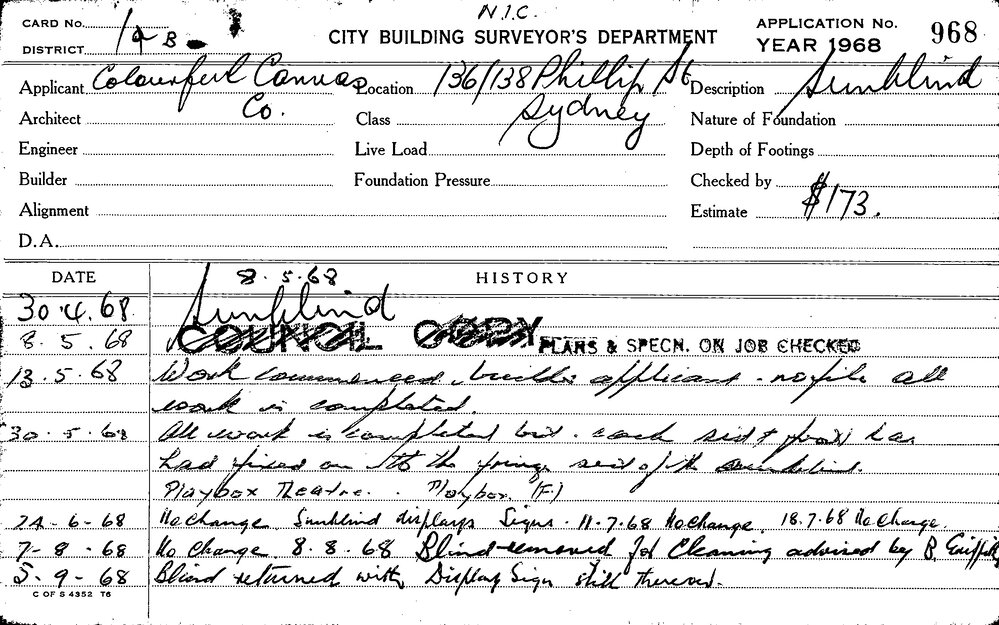 N.I.C.
CARD No. 19B
CITY BUILDING SURVEYOR'S DEPARTMENT
APPLICATION No. 968
DISTRICT
YEAR 1968
Applicant Colourful Canvas Co.
Location 136/138 Phillip St Sydney
Description Sunblind
Architect
Class
Nature of Foundation
Engineer
Live Load
Depth of Footings
Builder
Foundation Pressure
Checked by
Alignment
Estimate $173.
D.A.
DATE 8.5.68 HISTORY
30.4.68 Sunblind
8.5.68 COUNCIL COPY PLANS & SPECN. ON JOB CHECKED
13.5.68 Work commenced, builder applicant - all
work is completed.
30.5.68 All work is completed but each side & front has
had fixed on to the fringe of the sunblind.
Playbox Theatre. Playbox (F.)
24-6-68 No Change Sunblind displays Signs. 11.7.68 No Change. 18.7.68 No Change.
7-8-68 No Change. 8.8.68 Blind removed for Cleaning advised by B.
5-9-68 Blind returned with Display Sign still thereon.
C OF S 4352 T6